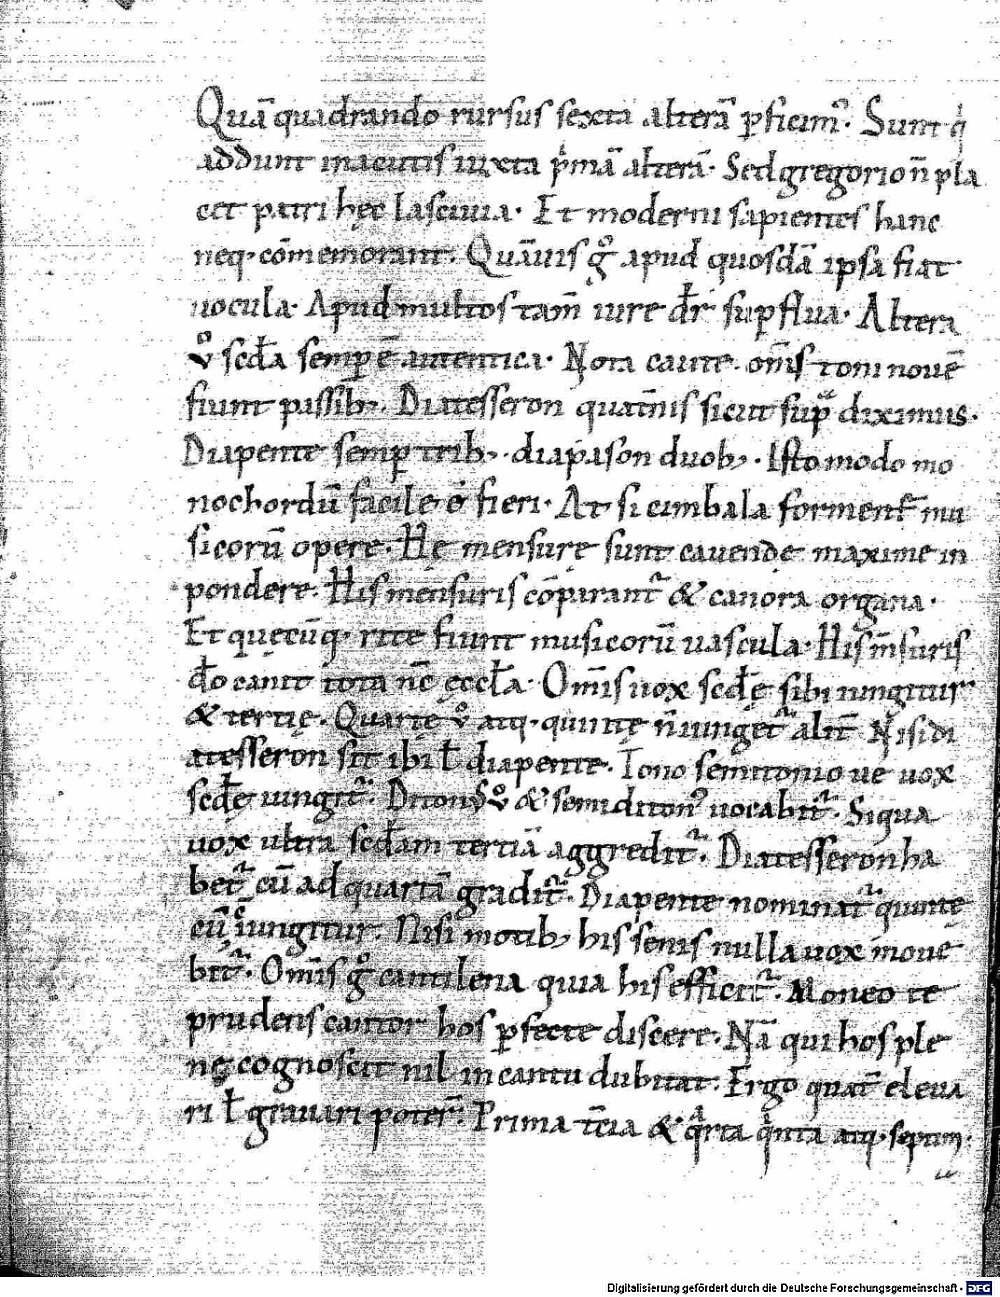 Quā quadrando rursus sexta alterā ꝑficim᾽. Sunt q̇
addunt inacutis iuxta p̍mā alterā. Sed gregorio n̄ pla
cet patri hęc lasciuia. Et moderni sapientes hanc
neq. cōmemorant. Quāuis gͦ apud quosdā ipsa fiat
uocula. Apud multos tam̄ iure dr̄ suꝑflua. Altera
vͦ scđa semꝑ ē autentica. Nota caute. om̄s toni nouē
fiunt passib;. Diatesseron quatn̄is sicut supͣ diximus.
Diapente semꝑ trib;. diapason duob;. Isto modo mo
nochordū facile ē fieri. At si cimbala forment᷑ mu
sicorū opere. Hę mensurę sunt cauendę maxime in
pondere. His mensuris cōparant᷑ & canora organa.
Et quęcūq. rite fiunt musicorū uascula. His m̄suris
đo canit tota nc̄ eccła. Om̄is uox scđę sibi iungitur
& tertię. Quartę vͦ atq. quintę n̄ iunget᷑ alit̄ Nisi di
atesseron sit ibi ł diapente. Tono semitonio ue uox
scđę iungit᷑. Diton᾽ vͦ & semiditon᾽ uocabit᷑. Siqua
uox ultra scđam tertiā aggredit᷑. Diatesseron ha
bet᷑ cū ad quartā gradit᷑. Diapente nominat᷑ quintę
cū iungitur. Nisi motib; his senis nulla uox moue
bit᷑. Om̄is gͦ cantilena quia his efficit᷑. Moneo te
prudens cantor hos ꝑfecte discere. Nā qui hos ple
ne cognoscit nil in cantu dubitat. Ergo quat̄ eleua
ri ł grauari poter̄. Prima t̄cia & qͣrta qͥnta atq. septim.
Digitalisierung gefördert durch die Deutsche Forschungsgemeinschaft - DFG